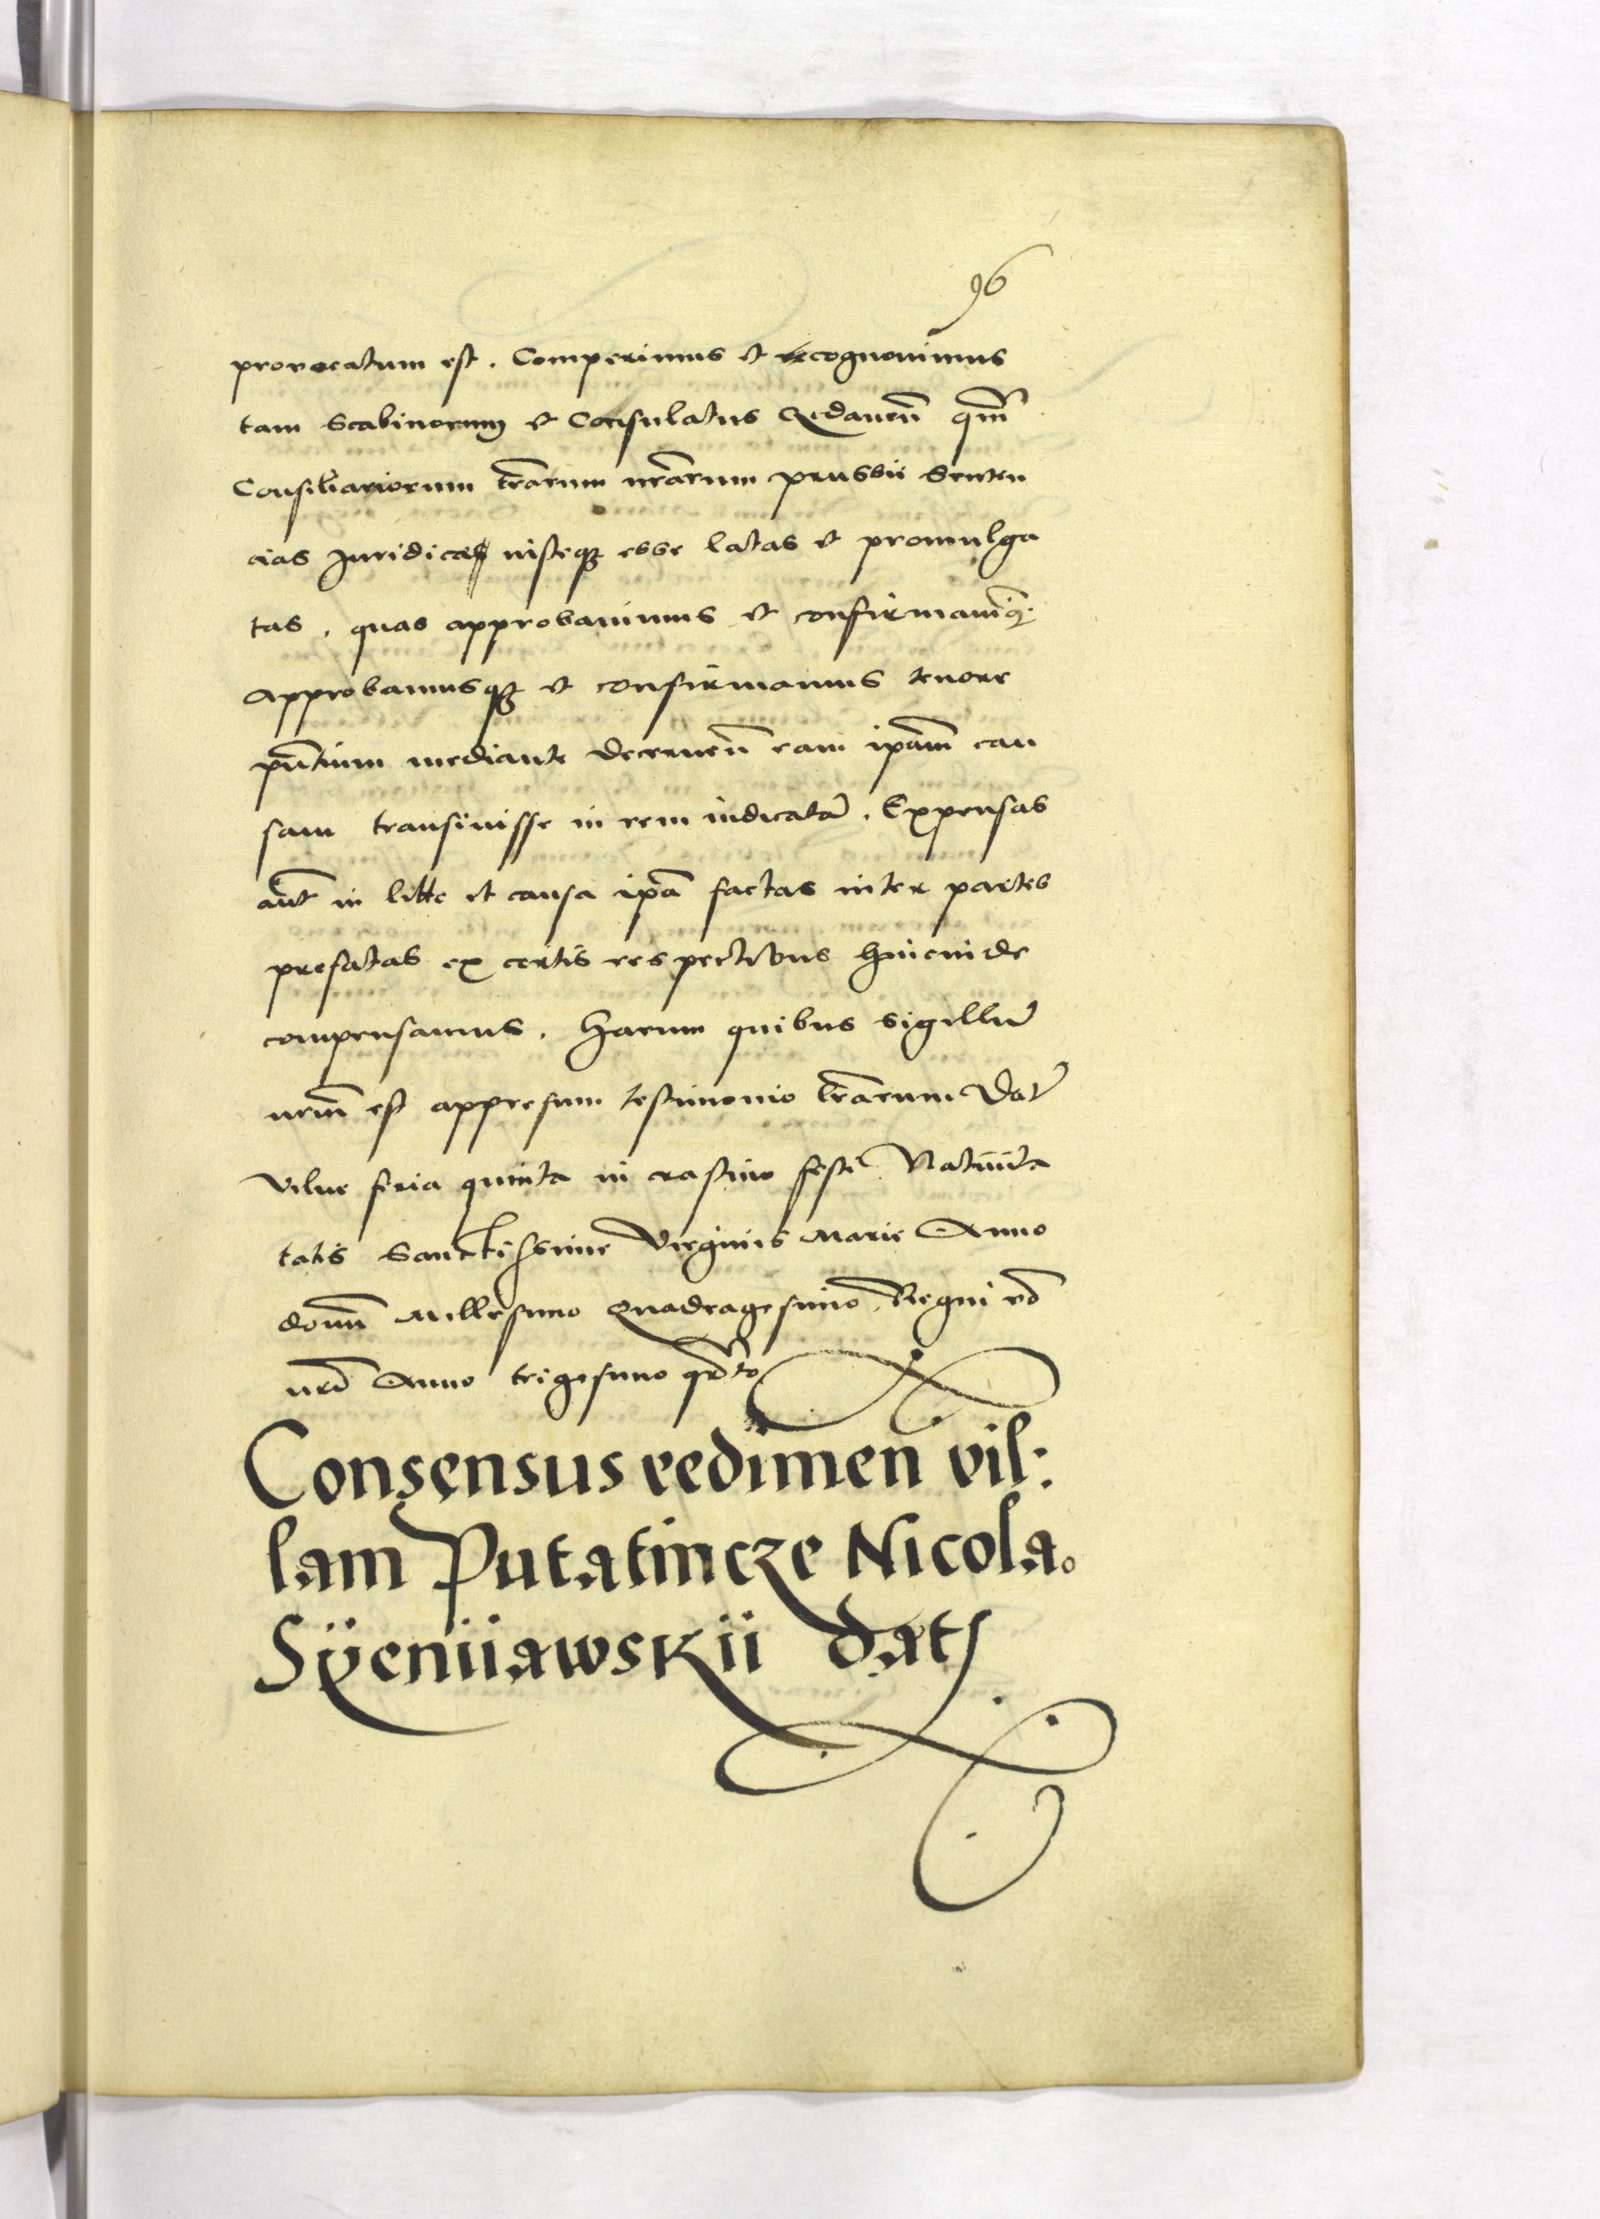 96
provocatum est. Comperimus et recognovimus
tam Scabinorum et Consulatus Gedaneñ qm̃
Consiliariorum tr̃arum nr̃arum prussie Senten
cias Juridicas iusteq3 esse latas et promulga
tas. quas approbavimus et confirmavimq3.
Approbamusq3 et confirmamus tenore
pñtium mediante decerneñ eam ip̃am cau
sam transivisse in rem iudicatã. Expensas
aut̃ in lite et causa ip̃a factas inter partes
prefatas ex certis respectibus hincinde
compensamus. Harum quibus sigillũ
nrm̃ est appresum testimonio lr̃arum Dat̃
Vilne feria quinta in crastino festi Nativita
tatis Sanctissime Virginis Marie Anno
domĩ Millesimo Quadragesimo. Regni vo͂
nrĩ Anno trigesimo qr̃to
Consensus redimeñ vil:
lam Putatincze Nicola.
Syeniiawskii dat